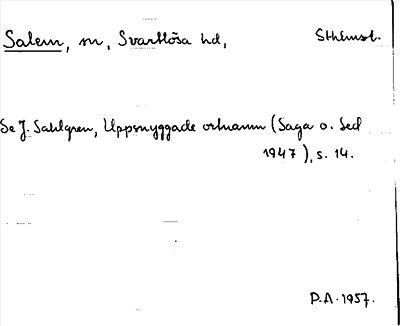 Salem, sn, Svartlösa hd, Sthlmsl.
Se J. Sahlgren, Uppsnyggade ortnamn (Saga o. Sed
1947), s. 14.
P.A. 1957.